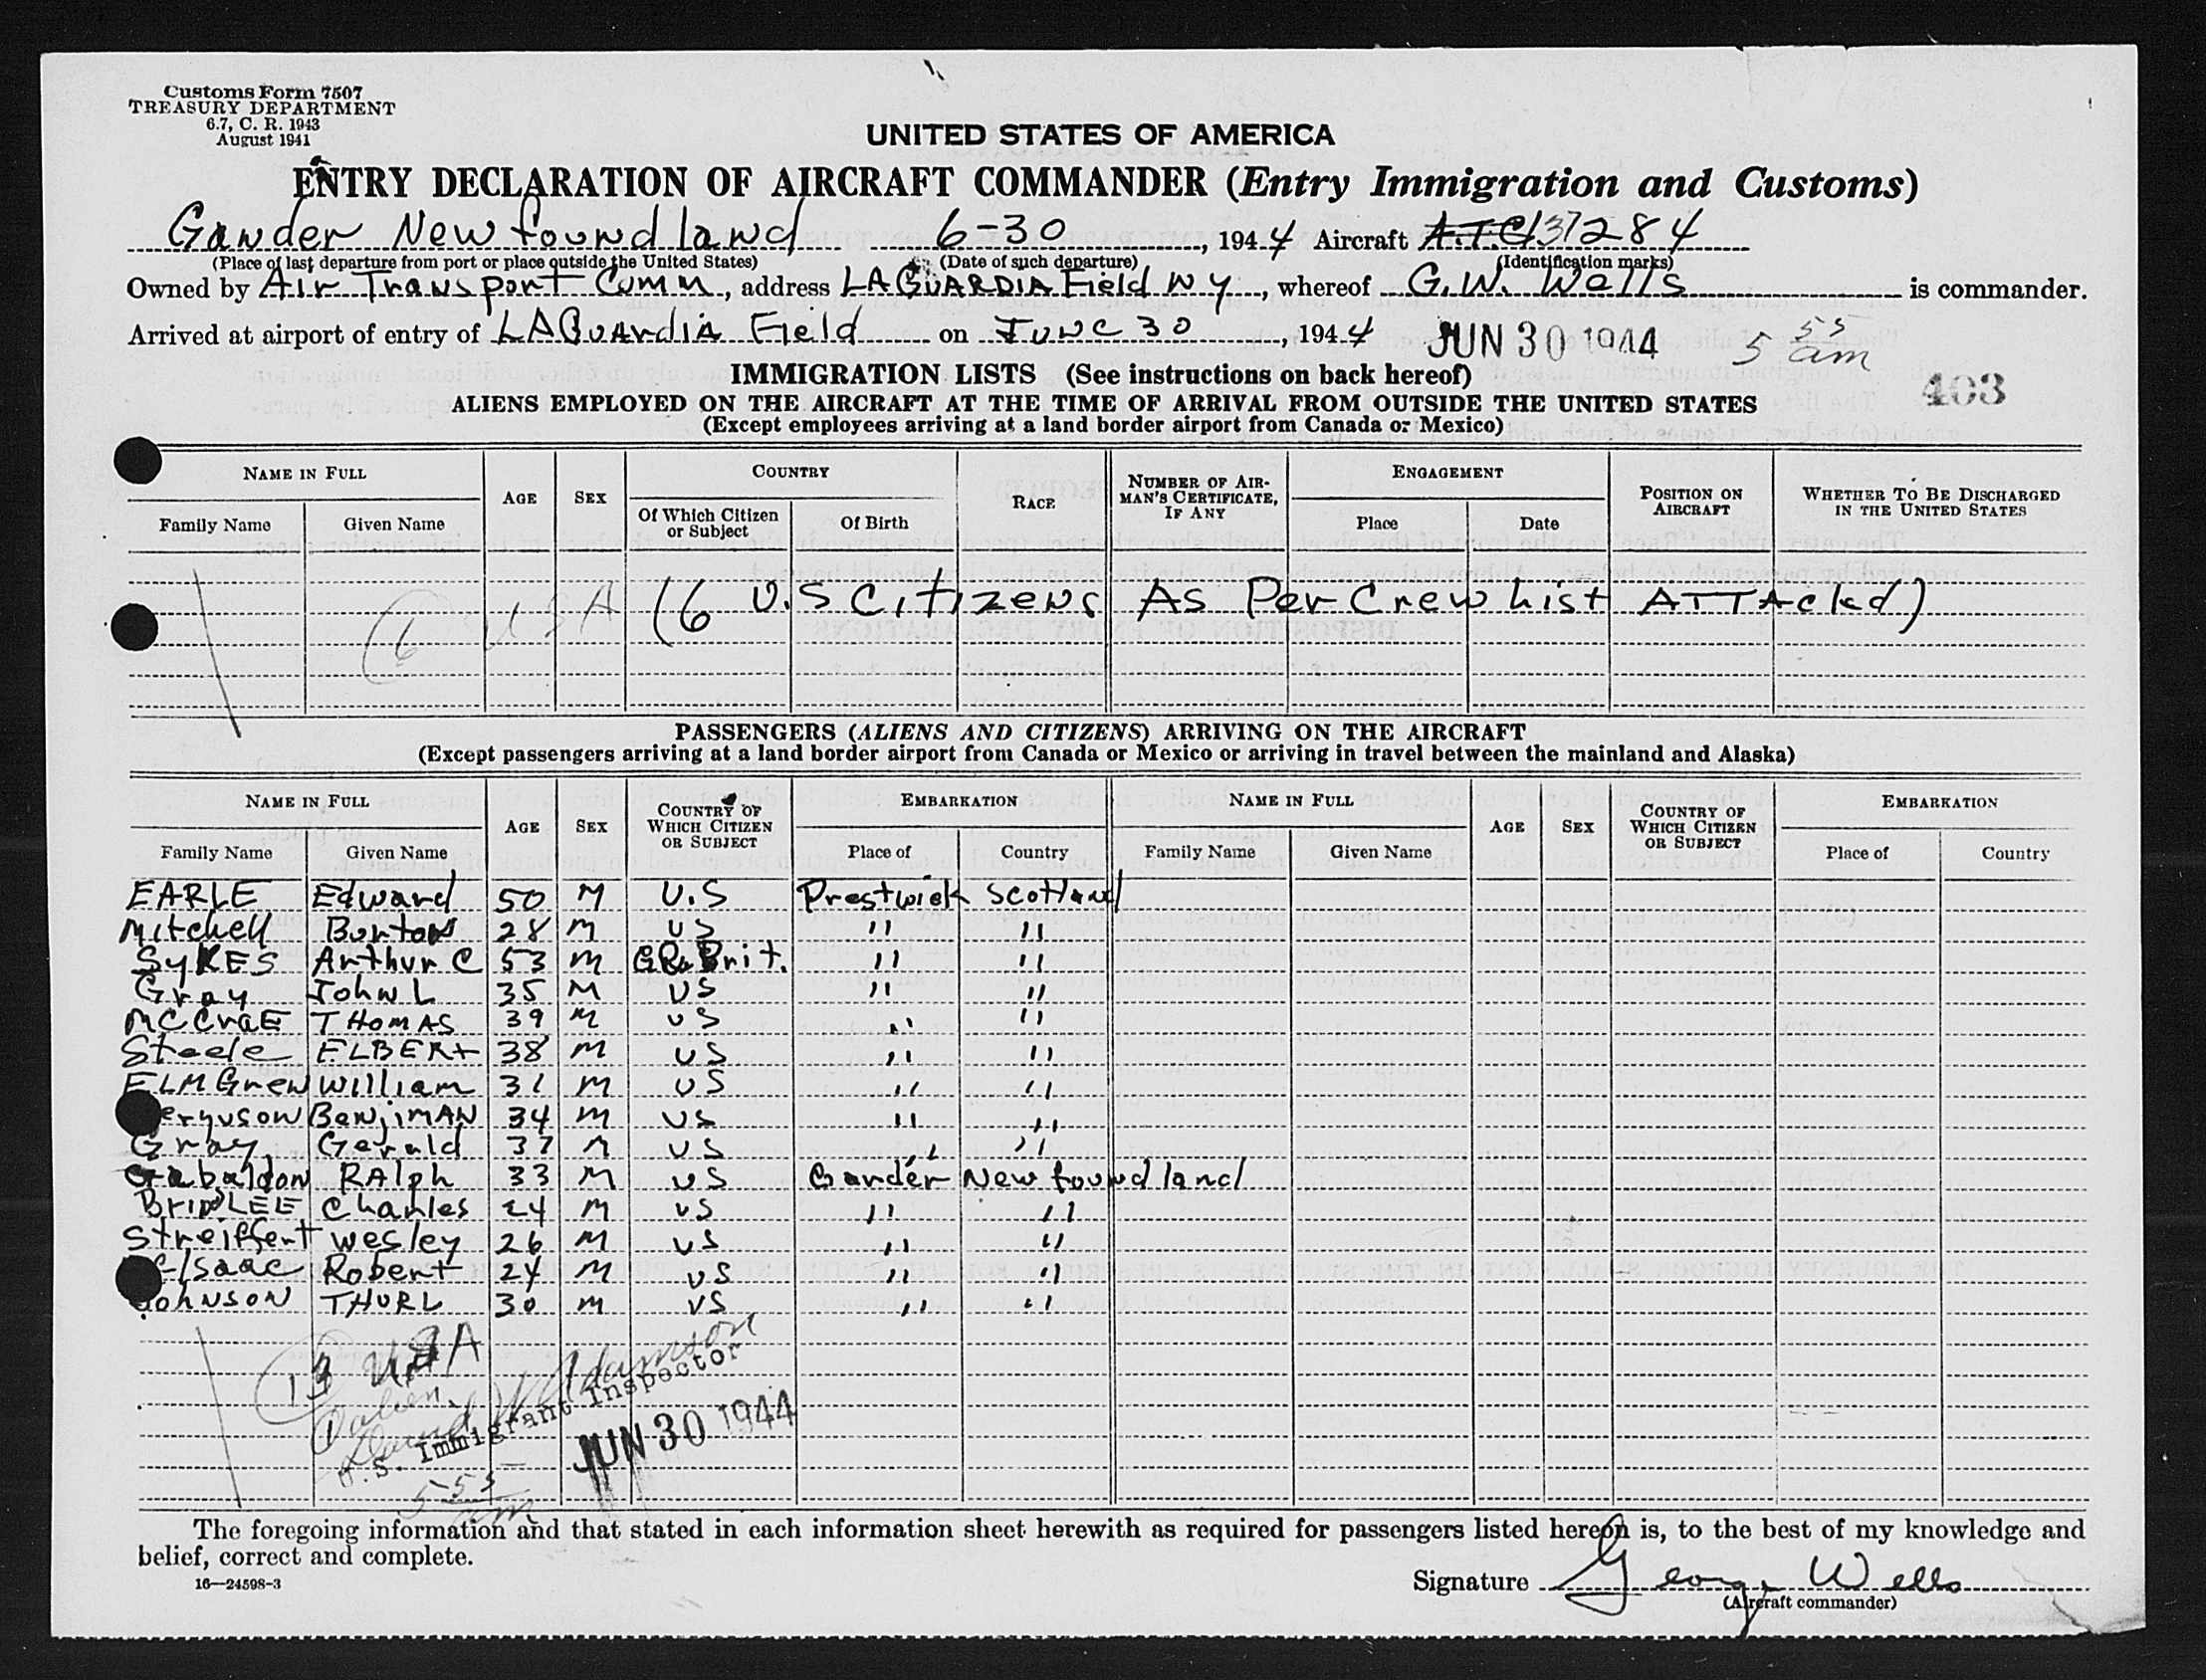 Customs Form 7507
TREASURY DEPARTMENT
6.7, C. R. 1943
August 1941
UNITED STATES OF AMERICA
ENTRY DECLARATION OF AIRCRAFT COMMANDER (Entry Immigration and Customs)
Gander Newfoundland 6-30, 1944 Aircraft A.T.C. 37284
(Place of last departure from port or place outside the United States) (Date of such departure) (Identification marks)
Owned by Air Transport Comm, address LAGUARDIA Field NY, whereof G.W. Wells is commander.
Arrived at airport of entry of LAGuArdiA Field on June 30, 1944 JUN 30 1944 5 55 am
IMMIGRATION LISTS (See instructions on back hereof)
403
ALIENS EMPLOYED ON THE AIRCRAFT AT THE TIME OF ARRIVAL FROM OUTSIDE THE UNITED STATES
(Except employees arriving at a land border airport from Canada or Mexico)
NAME IN FULL AGE SEX COUNTRY RACE NUMBER OF AIRMAN'S CERTIFICATE, IF ANY ENGAGEMENT POSITION ON AIRCRAFT WHETHER TO BE DISCHARGED IN THE UNITED STATES
Family Name Given Name Of Which Citizen or Subject Of Birth Place Date
(6 USA (6 U.S Citizens As Per Crew List ATTAcked)
PASSENGERS (ALIENS AND CITIZENS) ARRIVING ON THE AIRCRAFT
(Except passengers arriving at a land border airport from Canada or Mexico or arriving in travel between the mainland and Alaska)
NAME IN FULL AGE SEX COUNTRY OF WHICH CITIZEN OR SUBJECT EMBARKATION NAME IN FULL AGE SEX COUNTRY OF WHICH CITIZEN OR SUBJECT EMBARKATION
Family Name Given Name Place of Country Family Name Given Name Place of Country
EARLE Edward 50 M U.S Prestwick Scotland
Mitchell Burton 28 M US " "
SyKES Arthur C 53 M GR. Brit. " "
Gray John L 35 M US " "
McCraE THOMAS 39 M US " "
Steele ELBERt 38 M US " "
ELMGren William 31 M US " "
erguson BenjiMAN 34 M US " "
Gray, Gerald 37 M US " "
Gabaldon RAlph 33 M US Gander Newfoundland
BrinLEE Charles 24 M US " "
Streiffert Wesley 26 M US " "
cIsaac Robert 24 M US " "
JOHNSON THURL 30 M US " "
13 USA
1 alien
Adamson
U.S. Immigrant Inspector
JUN 30 1944
5 55 am
The foregoing information and that stated in each information sheet herewith as required for passengers listed hereon is, to the best of my knowledge and
belief, correct and complete.
16—24598-3
Signature George Wells
(Aircraft commander)